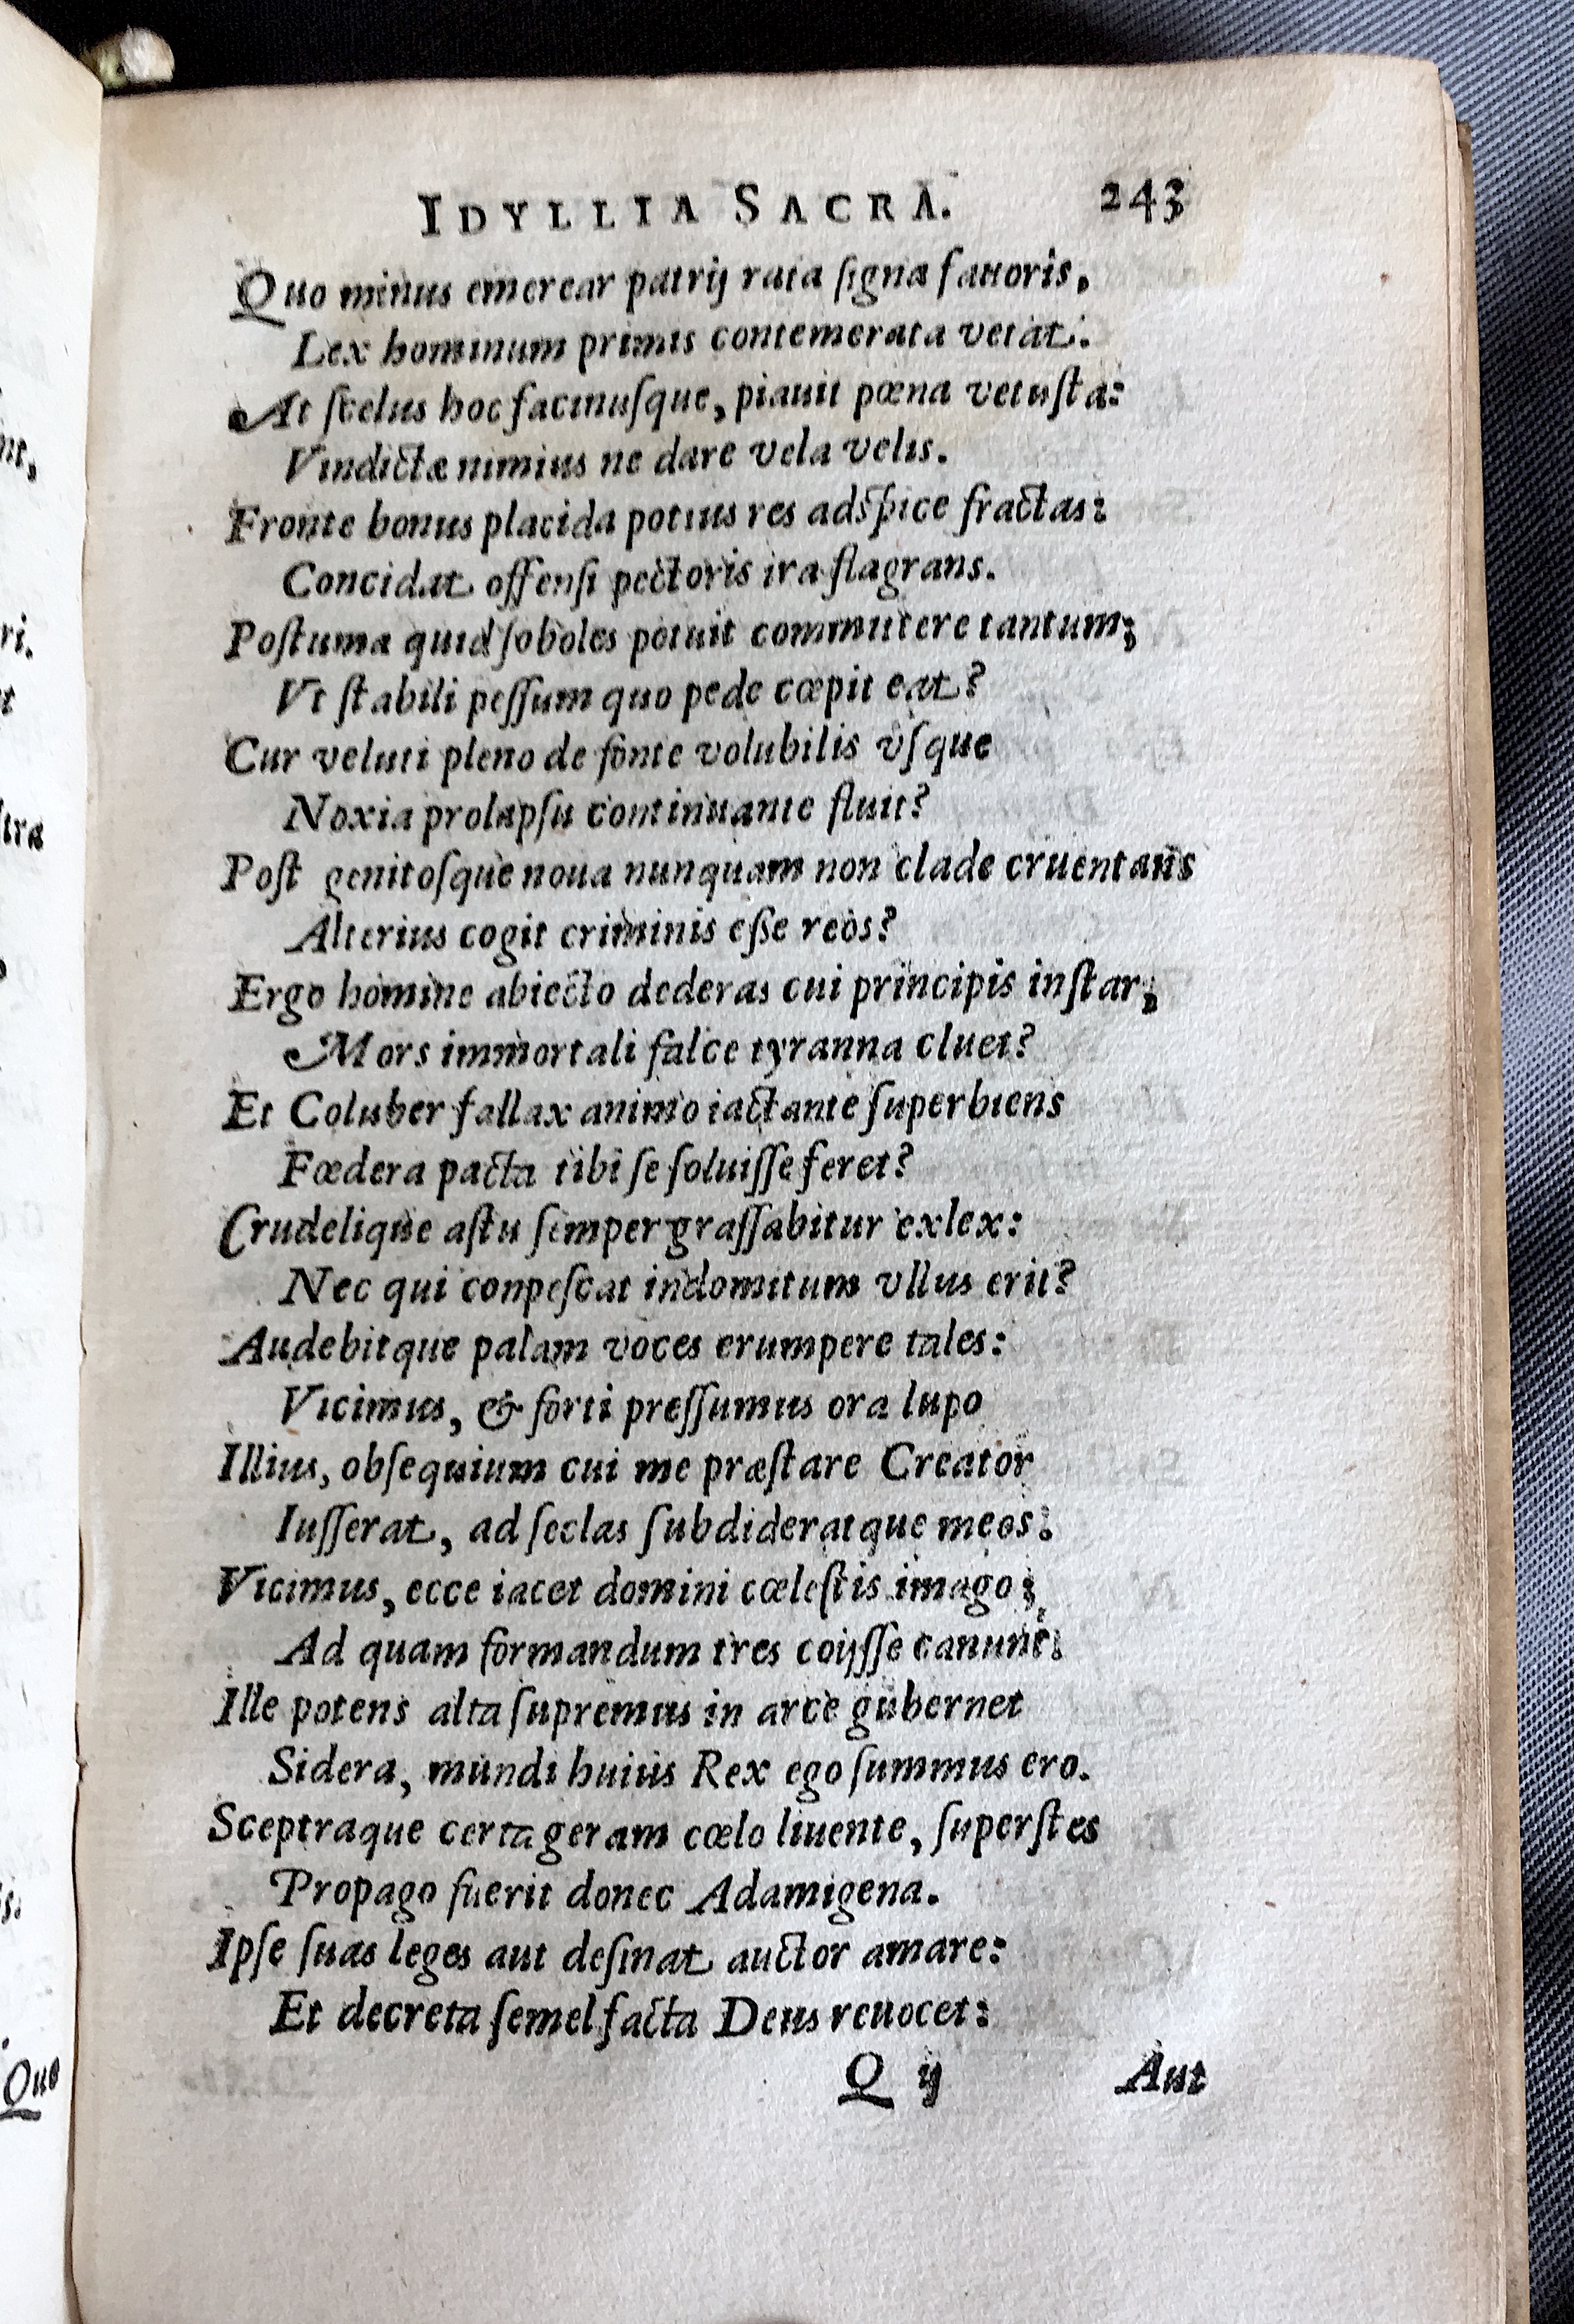 IDYLLIA SACRA. 243
Quo minus emerear patrij rata ſigna fauoris,
Lex hominum primis contemerata vetat:
At ſcelus hoc facinuſque, piauit pœna vetuſta:
Vindictæ nimius ne dare vela velis.
Fronte bonus placida potius res adſpice fractas:
Concidat offenſi pectoris ira flagrans.
Poſtuma quid ſoboles potuit committere tantum;
Vt ſtabili peſſum quo pede cœpit eat?
Cur veluti pleno de fonte volubilis vſque
Noxia prolapſu continuante fluit?
Poſt genitoſque noua nunquam non clade cruentans
Alterius cogit criminis eſſe reos?
Ergo homine abiecto dederas cui principis inſtar,
Mors immortali falce tyranna cluet?
Et Coluber fallax animo iactante ſuperbiens
Fœdera pacta tibi ſe ſoluiſſe feret?
Crudelique aſtu ſemper graſſabitur exlex:
Nec qui conpeſcat indomitum vllus erit?
Audebitque palam voces erumpere tales:
Vicimus, & forti preſſumus ora lupo
Illius, obſequium cui me præſtare Creator
Iuſſerat, ad ſeclas ſubdideratque meos:
Vicimus, ecce iacet domini cœleſtis imago;
Ad quam formandum tres coijſſe canunt:
Ille potens alta ſupremus in arce gubernet
Sidera, mundi huius Rex ego ſummus ero.
Sceptraque certa geram cœlo liuente, ſuperſtes
Propago fuerit donec Adamigena.
Ipſe ſuas leges aut deſinat auctor amare:
Et decreta ſemel facta Deus reuocet:
Q ij Aut
nt,
ri.
t
ſtra
Quo